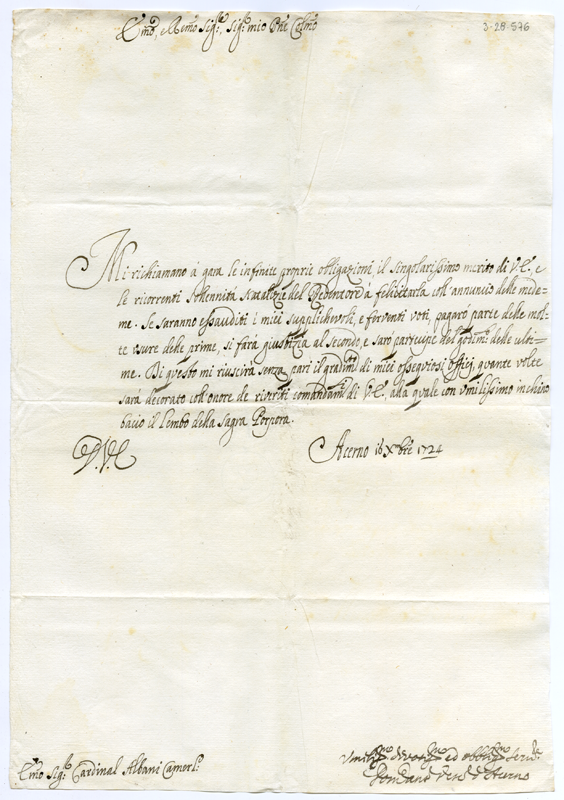 Emo, e Remo Sigr., Sigr. mio Pne Colmo
3-28-576
Mi richiamano à gara le infinite proprie obligazioni, il singolarissimo merito di V.E., e
le ricorrenti solennità Natalizie del Redentore à felicitarla coll'annuncio delle mede=
me. Se saranno essauditi i miei supplichevoli, e ferventi voti, pagarò parte delle mol=
te usure delle prime, si farà giustizia al secondo, e sarò partecipe del godimto delle ulti=
me. Di questo mi riuscirà senza pari il gradimto di miei ossequiosi officj, quante volte
sarà decorato coll'onore de riveriti comandamti di V.E., alla quale con umilissimo inchino
bacio il lembo della sagra Porpora.
D.V.E.
Acerno 16 Xbre 1724
Emo Sigr. Cardinal Albani Camerlo
Umilissmo Devotissmo ed obblissmo Servre